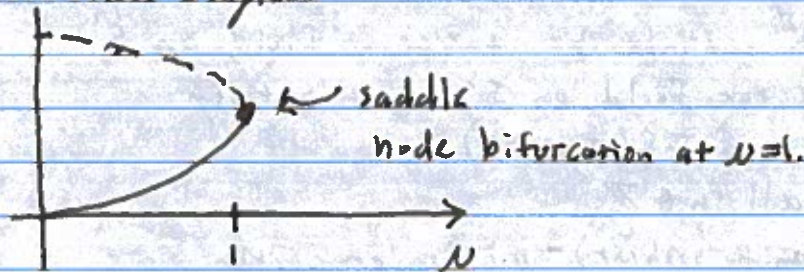 saddle
node bifurcation at μ=1.
1
μ